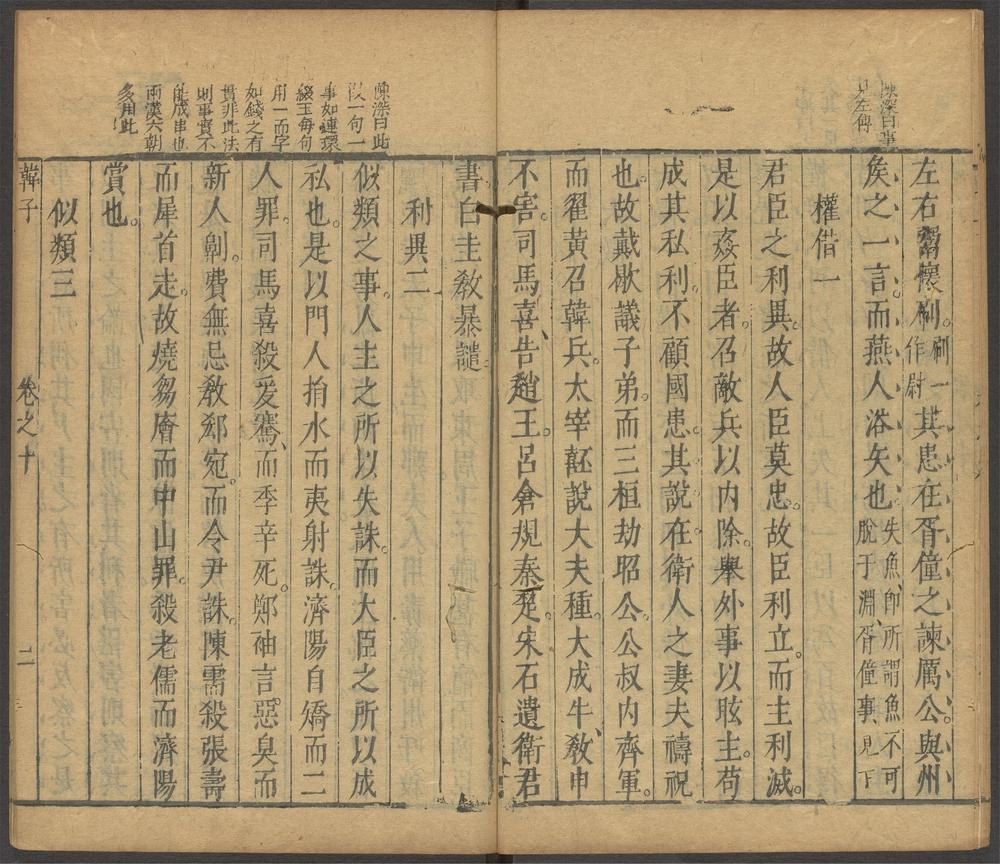 陳深曰事
見左傳
左右鬻懷刷刷一作尉其患在胥僮之諫厲公與州
侯之一言而燕人浴矢也失魚即所謂魚不可
脫于淵胥僮事見下
權借一
君臣之利異故人臣莫忠故臣利立而主利滅
是以姦臣者召敵兵以內除舉外事以眩主苟
成其私利不顧國患其說在衛人之妻夫禱祝
也故戴歇議子弟而三桓劫昭公公叔內齊軍
而翟黃召韓兵太宰嚭說大夫種大成牛教申
不害司馬喜告趙王呂倉規秦楚宋石遺衛君
書白圭教暴譴
利異二
陳深曰此
以一句一
事如連環
綴玉每句
用一而字
如錢之有
貫非此法
則事實不
能成串也
兩漢六朝
多用此
似類之事人主之所以失誅而大臣之所以成
私也是以門人捐水而夷射誅濟陽自矯而二
人罪司馬喜殺爰騫而季辛死鄭袖言惡臭而
新人劓費無忌教郄宛而令尹誅陳需殺張壽
而犀首走故燒芻廥而中山罪殺老儒而濟陽
賞也
似類三
韓子 卷之十 二